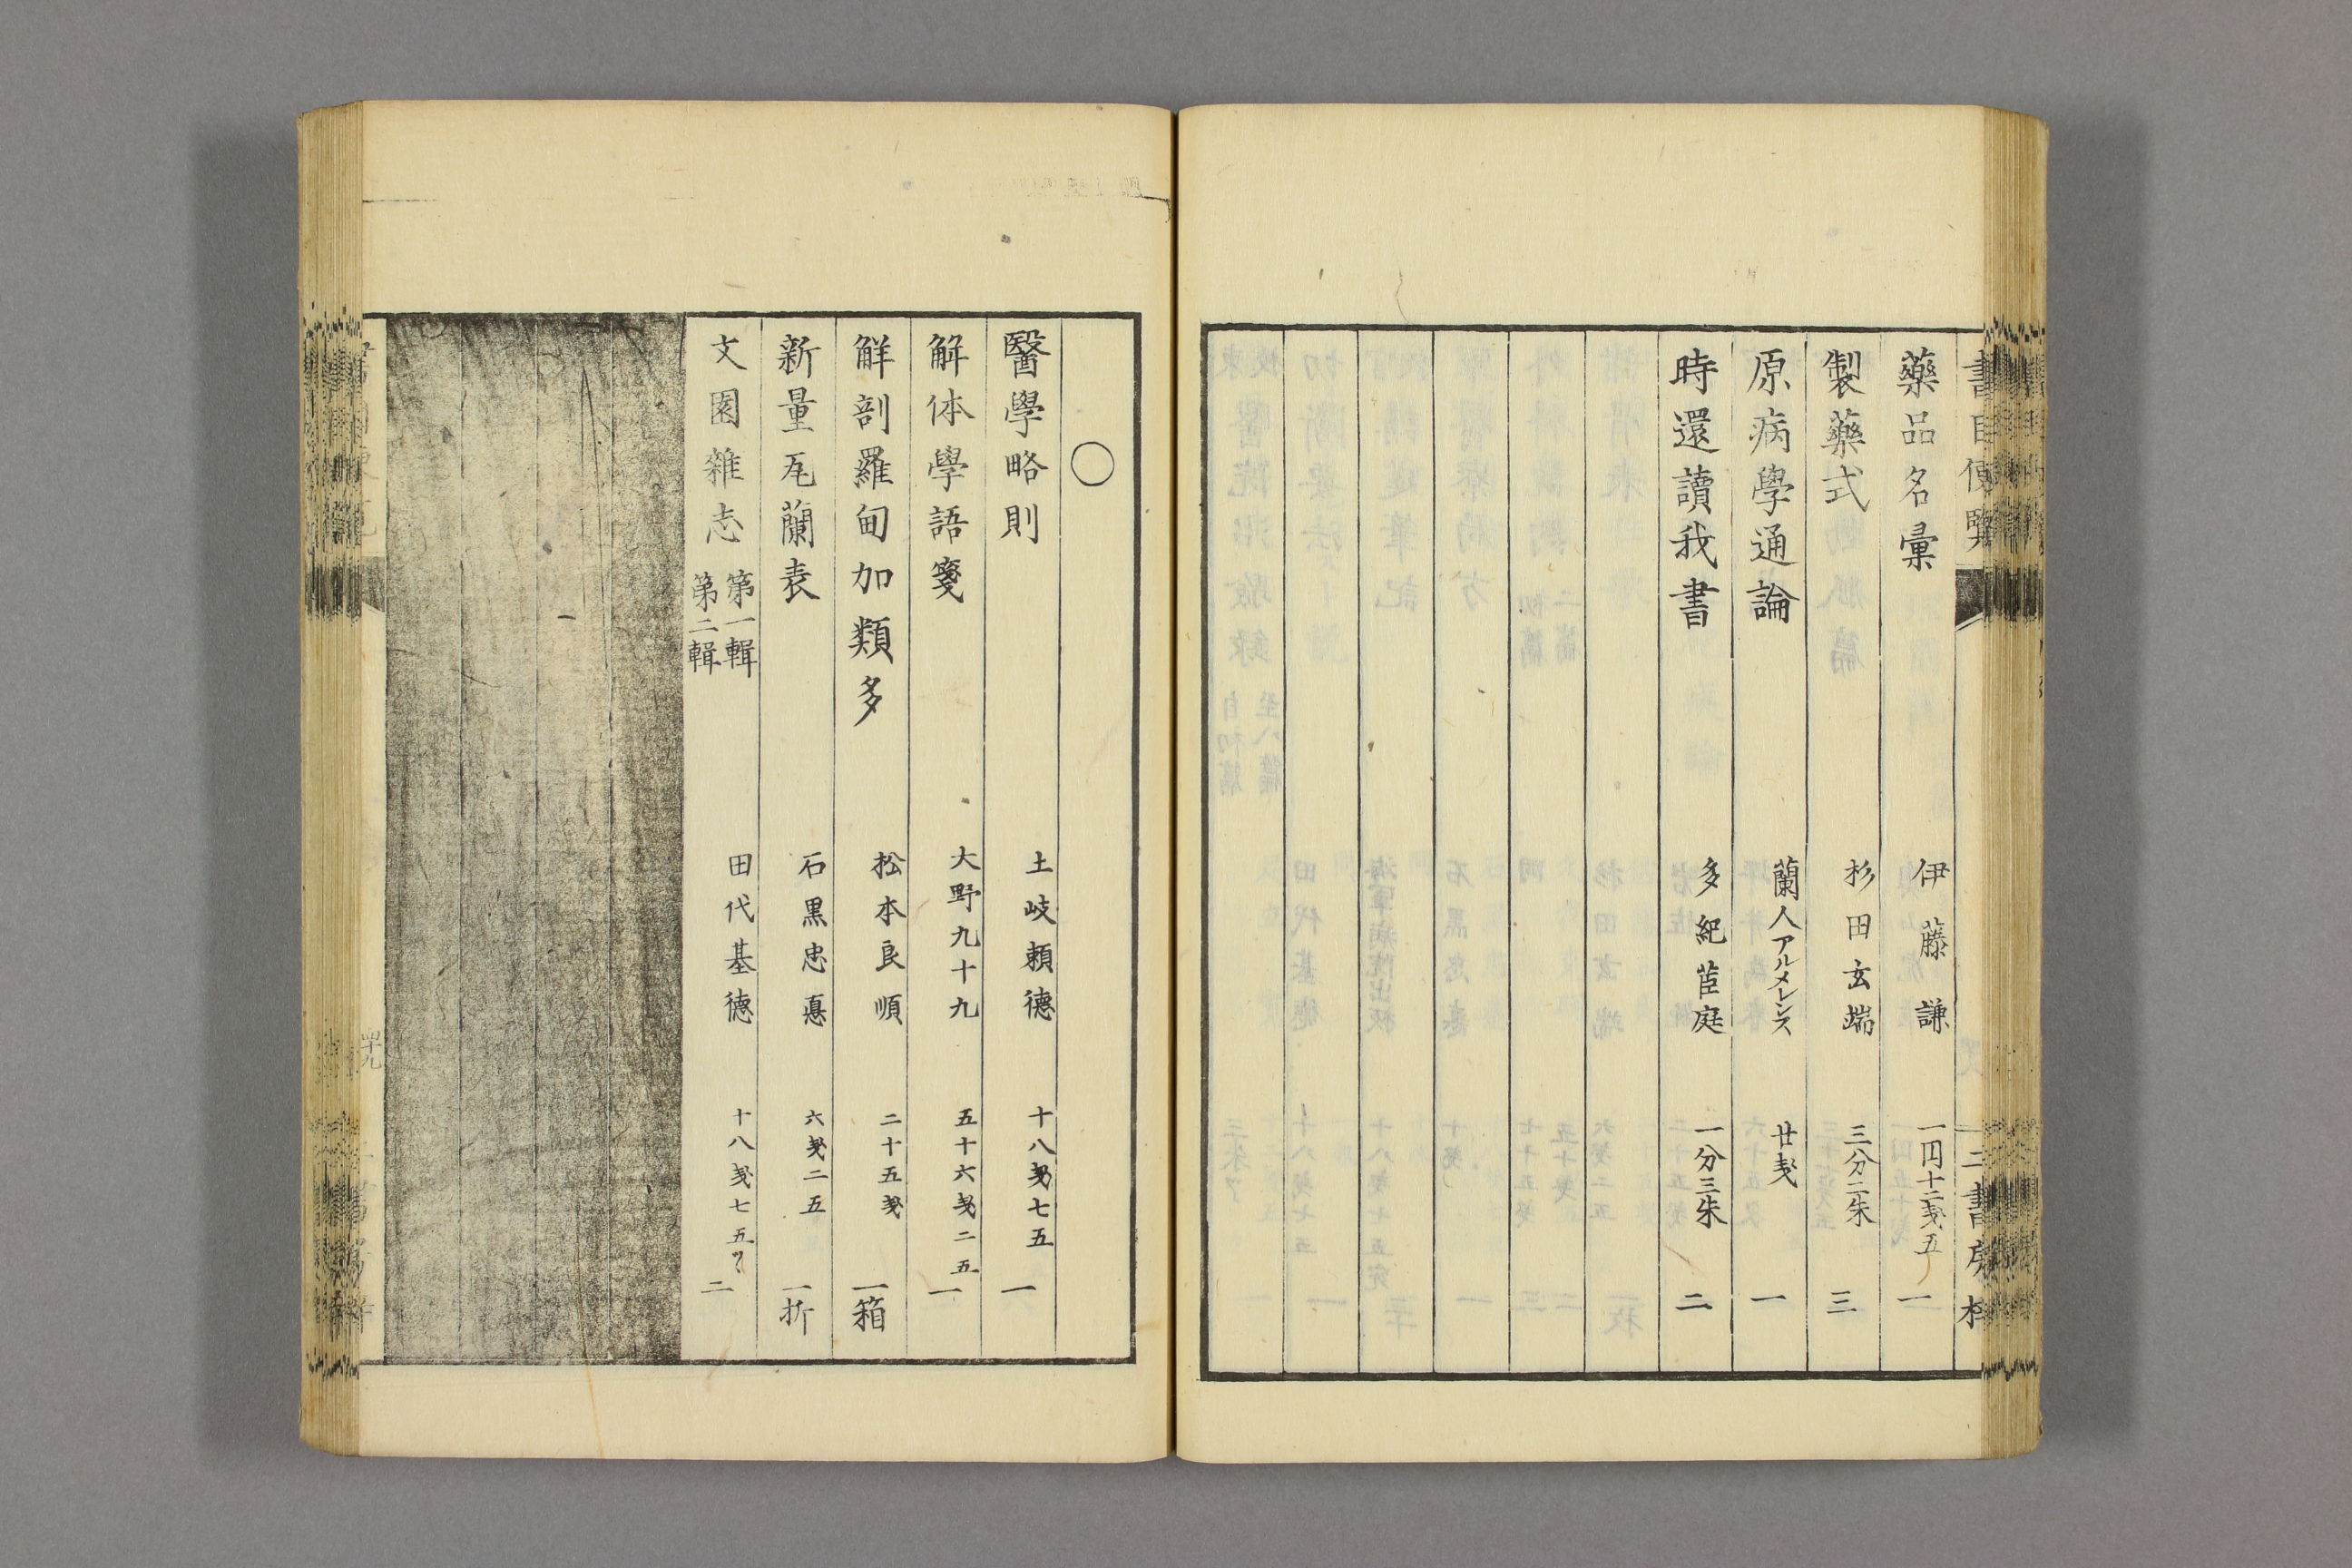 書目便覽 二書房梓
藥品名彙 伊藤謙 一円十二戔五 一
製藥式 杉田玄端 三分二朱 三
原病學通論 蘭人アルメレンス 廿戔 一
時還讀我書 多紀茝庭 一分三朱 二
〇
醫學略則 土岐頼德 十八戔七五 一
解体學語箋 大野九十九 五十六戔二五 一
解剖羅甸加類多 松本良順 二十五戔 一箱
新量瓦蘭表 石黒忠悳 六戔二五 一折
文園雜志 第一輯 第二輯 田代基德 十八戔七五ツヽ 二